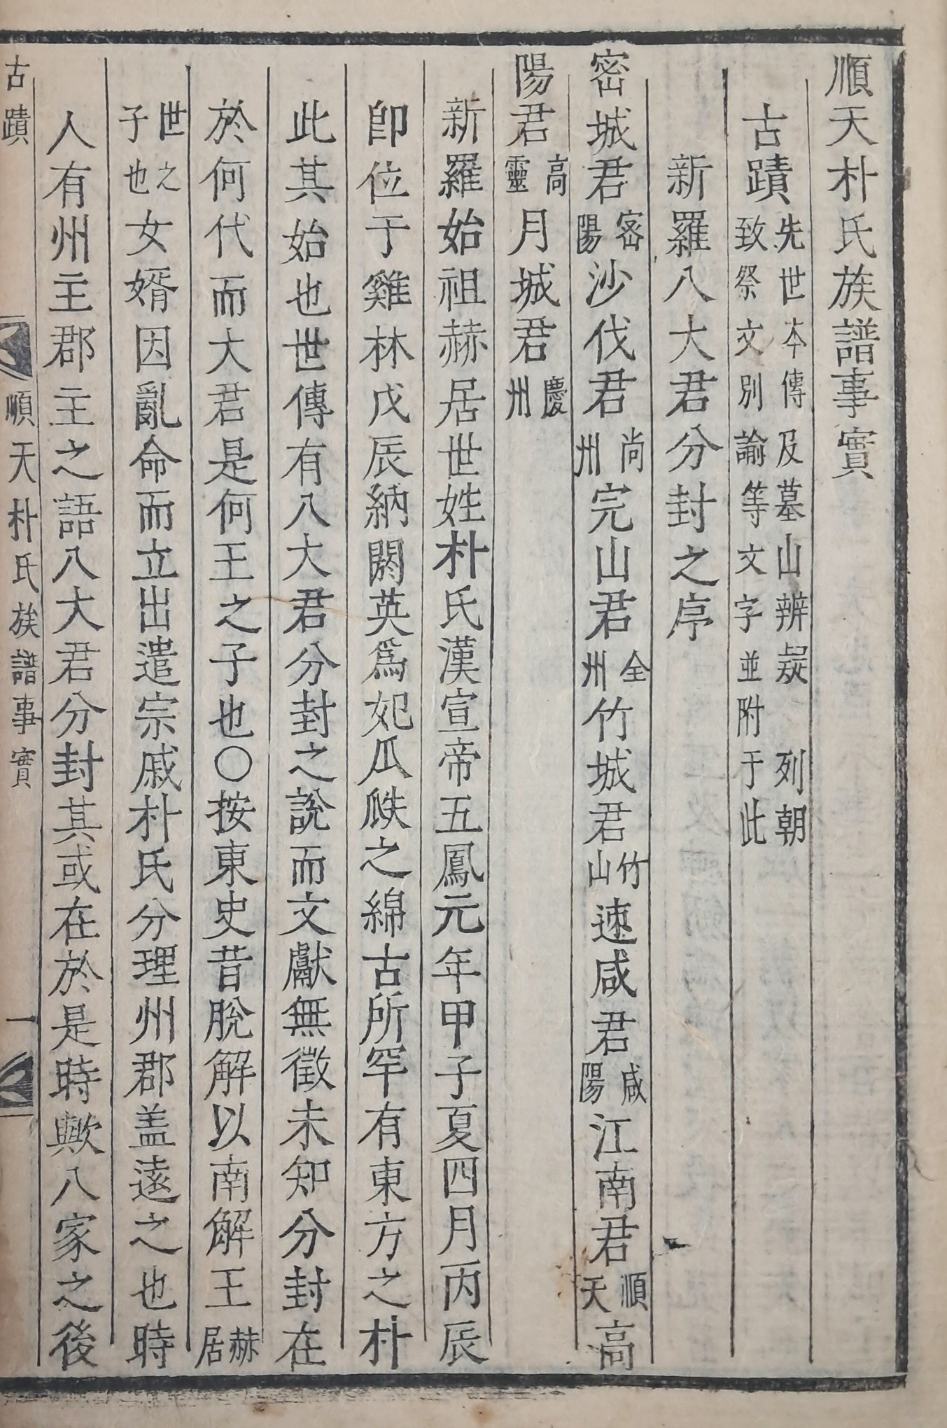 順天朴氏族譜事實
古蹟先世本傳及墓山辨㷡 列朝
致祭文別諭等文字並附于此
新羅八大君分封之序
密城君密陽沙伐君尚州完山君全州竹城君竹山速咸君咸陽江南君順天高
陽君高靈月城君慶州
新羅始祖赫居世姓朴氏漢宣帝五鳳元年甲子夏四月丙辰
卽位于雞林戊辰納閼英爲妃瓜瓞之綿古所罕有東方之朴
此其始也世傳有八大君分封之說而文獻無徵未知分封在
於何代而大君是何王之子也〇按東史昔脫解以南解王赫居
世之子也女婿因亂命而立出遣宗戚朴氏分理州郡盖遠之也時
人有州主郡主之語八大君分封其或在於是時歟八家之後
古蹟 順天朴氏族譜事實 一